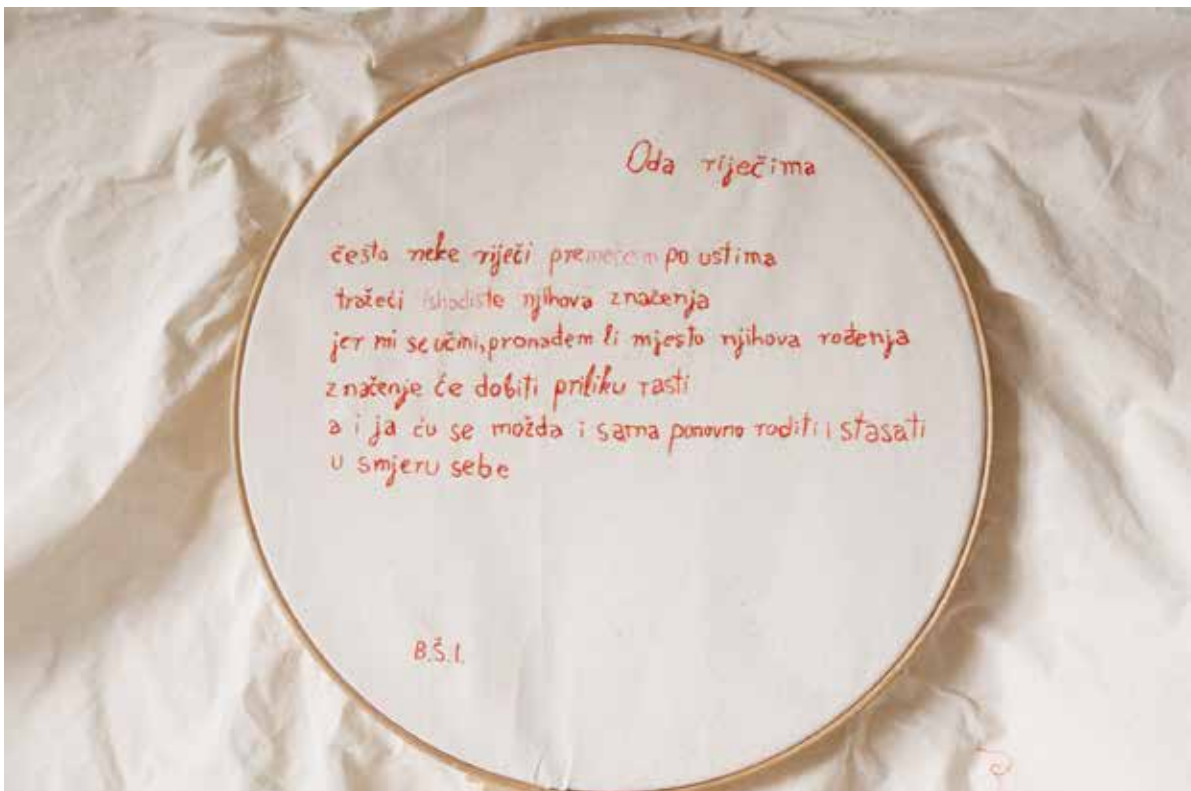 Oda riječima
često neke riječi premećem po ustima
tražeći ishodište njihova značenja
jer mi se učini, pronađem li mjesto njihova rođenja
značenje će dobiti priliku rasti
a i ja ću se možda i sama ponovno roditi i stasati
u smjeru sebe
B.Š.I.